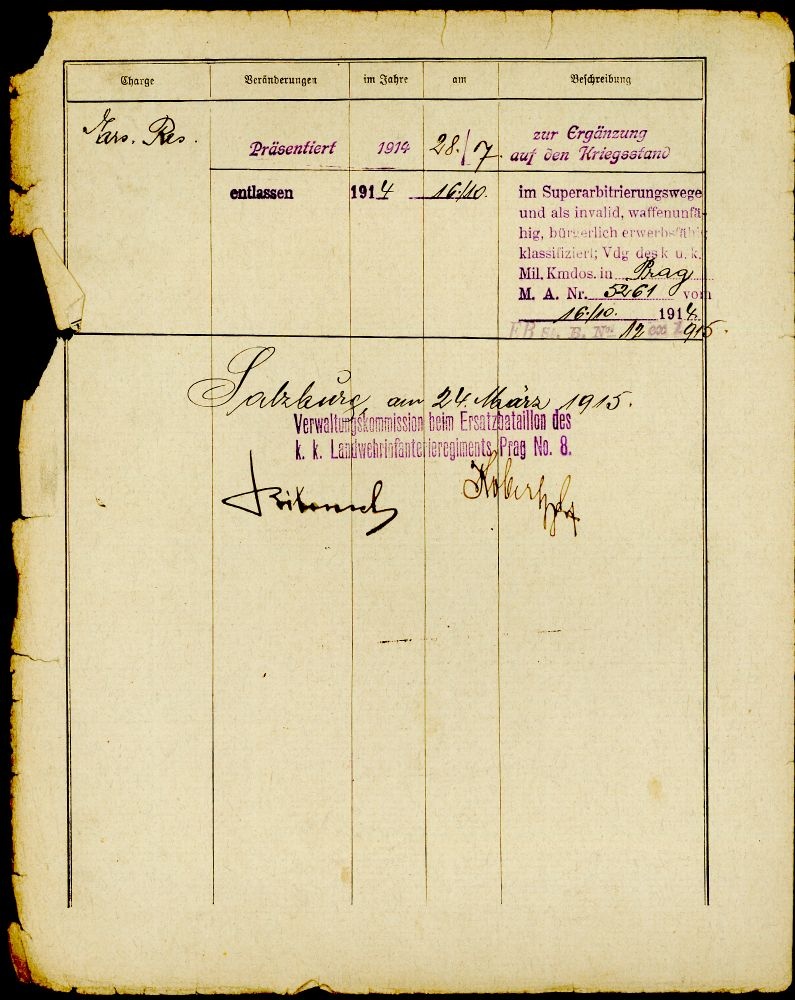 Charge Veränderungen im Jahre am Beschreibung
Res.
Präsentiert 1914 28./7. zur Ergänzung
auf den Kriegsstand
entlassen 1914 16./10. im Superarbitrierungswege
und als invalid, waffenunfä-
hig, bürgerlich erwerbsfähig
klassifiziert; Vdg des k. u. k.
Mil. Kmdos. in Prag
M. A. Nr. 5261 vom
16./10. 1914.
EB St. B. No. 12 ex 1915
Salzburg, am 24 März 1915.
Verwaltungskommission beim Ersatzbataillon des
k. k. Landwehrinfanterieregiments Prag No. 8.